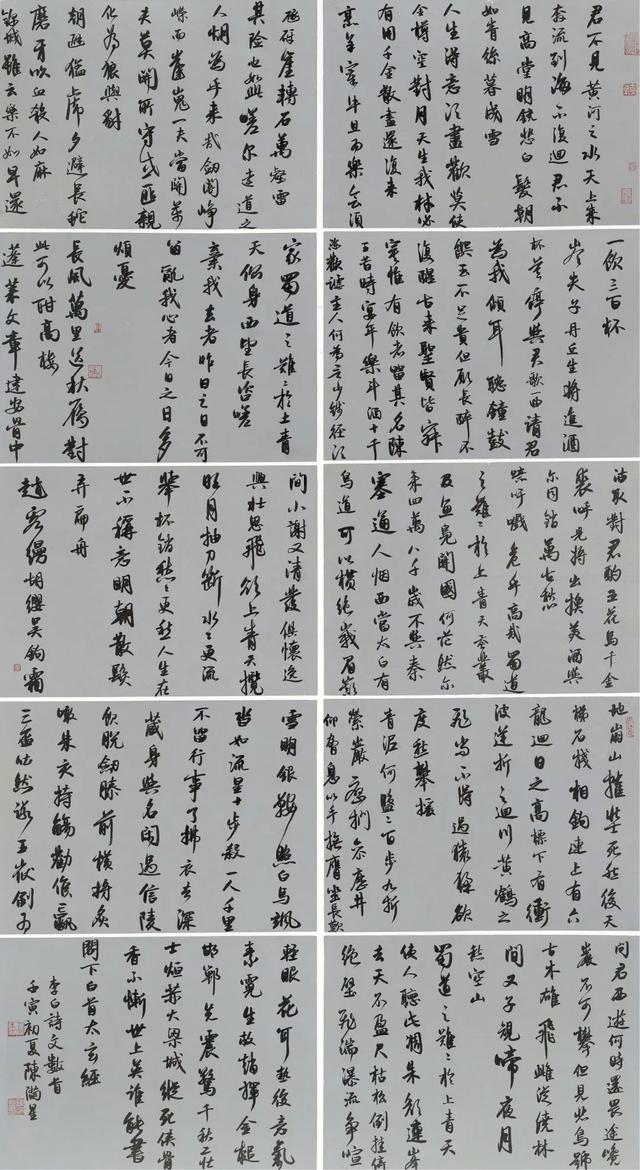 君不見黃河之水天上來
奔流到海不復迴君不
見高堂明鏡悲白髮朝
如青絲暮成雪
人生得意須盡歡莫使
金樽空對月天生我材必
有用千金散盡還復來
烹羊宰牛且為樂會須
一飲三百杯
岑夫子丹丘生將進酒
杯莫停與君歌一曲請君
為我傾耳聽鐘鼓
饌玉不足貴但願長醉不
復醒古來聖賢皆寂
寞惟有飲者留其名陳
王昔時宴平樂斗酒十千
恣歡謔主人何為言少錢徑須
沽取對君酌五花馬千金
裘呼兒將出換美酒與
爾同銷萬古愁
噫吁嚱危乎高哉蜀道
之難難於上青天蠶叢
及魚鳧開國何茫然爾
來四萬八千歲不與秦
塞通人烟西當太白有
鳥道可以橫絕峨眉巔
地崩山摧壯士死然後天
梯石棧相鉤連上有六
龍迴日之高標下有衝
波逆折之迴川黃鶴之
飛尚不得過猿猱欲
度愁攀援
青泥何盤盤百步九折
縈巖巒捫參歷井
仰脅息以手撫膺坐長歎
問君西遊何時還畏途巉
巖不可攀但見悲鳥號
古木雄飛雌從繞林
間又子規啼夜月
愁空山
蜀道之難難於上青天
使人聽此凋朱顏連峰
去天不盈尺枯松倒挂倚
絕壁飛湍瀑流爭喧
砯崖轉石萬壑雷
其險也如此嗟爾遠道之
人胡為乎來哉劍閣崢
嶸而崔嵬一夫當關萬
夫莫開所守或匪親
化為狼與豺
朝避猛虎夕避長蛇
磨牙吮血殺人如麻
錦城雖云樂不如早還
家蜀道之難難於上青
天側身西望長咨嗟
棄我去者昨日之日不可
留亂我心者今日之日多
煩憂
長風萬里送秋雁對
此可以酣高樓
蓬萊文章建安骨中
間小謝又清發俱懷逸
興壯思飛欲上青天攬
明月抽刀斷水水更流
舉杯銷愁愁更愁人生在
世不稱意明朝散髮
弄扁舟
趙客縵胡纓吳鉤霜
雪明銀鞍照白馬颯
沓如流星十步殺一人千里
不留行事了拂衣去深
藏身與名閑過信陵
飲脫劍膝前橫將炙
啖朱亥持觴勸侯嬴
三盃吐然諾五嶽倒為
輕眼花耳熱後意氣
素霓生救趙揮金槌
邯鄲先震驚千秋二壯
士烜赫大梁城縱死俠骨
香不慚世上英誰能書
閣下白首太玄經
李白詩文數首
壬寅初夏陳滿星